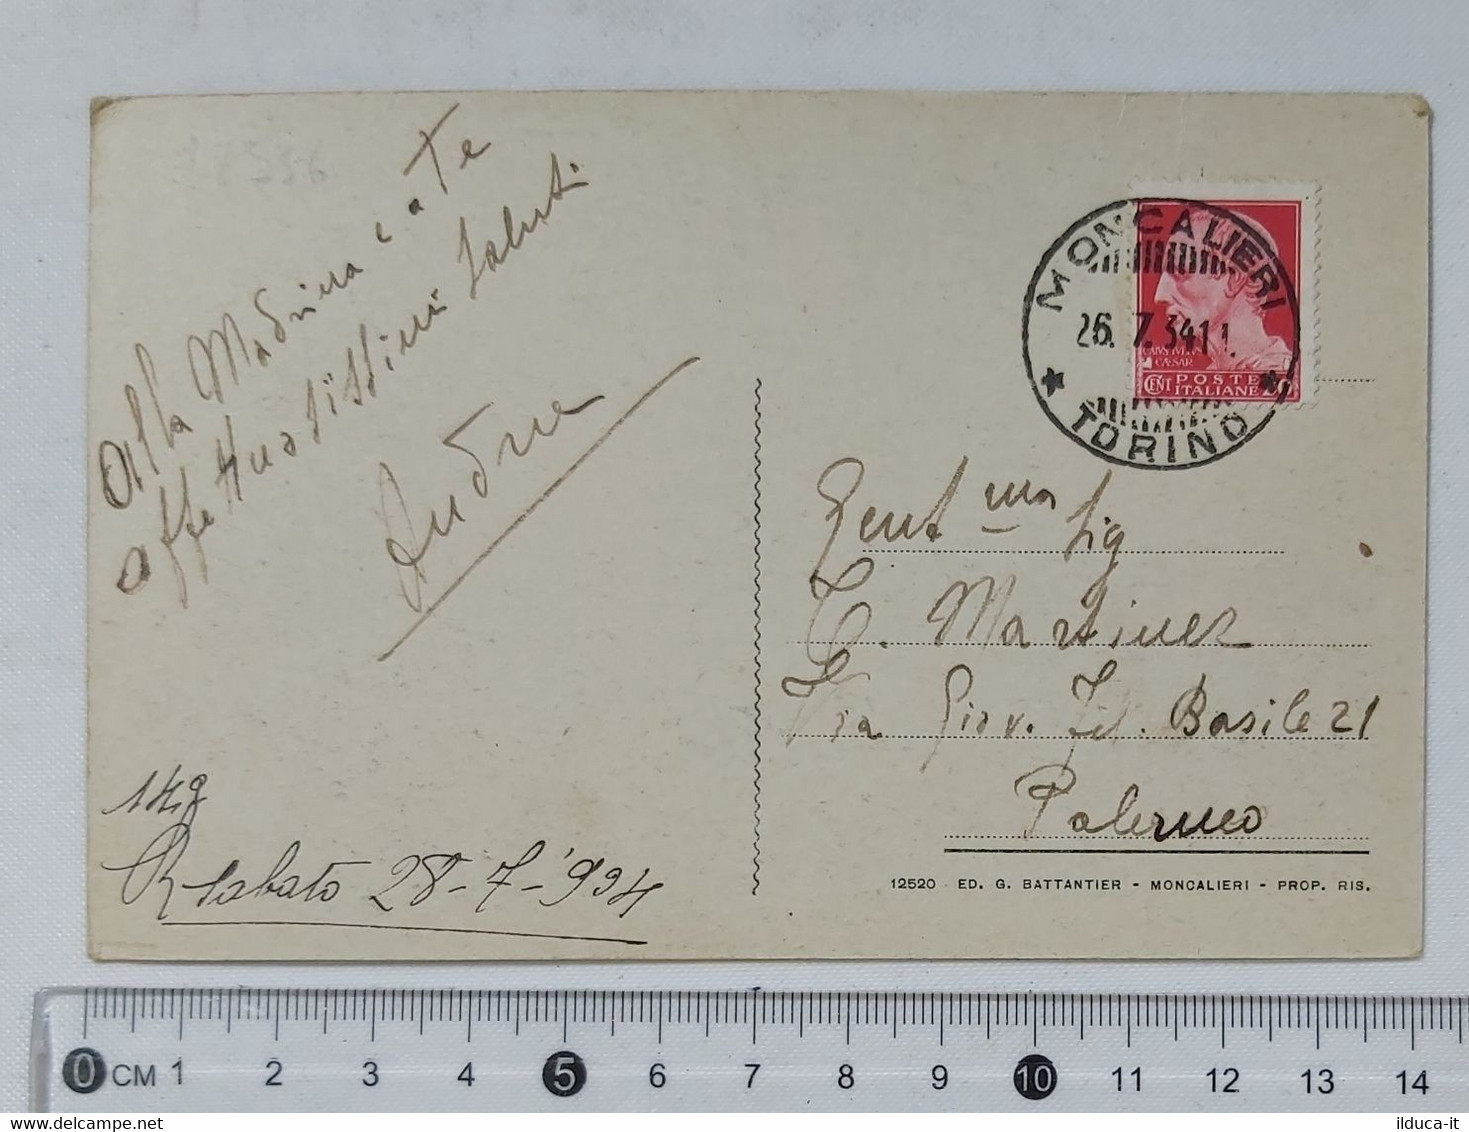 Alla Madrina e a Te
affettuosissimi saluti
Andrea
R Sabato 28-7-'934
MONCALIERI
26. 7. 34 11.
TORINO
CAIVS IVLIVS
CÆSAR
CENT POSTE
ITALIANE 20
Gent ma Sig
C. Martinez
Via Giov. Fil. Basile 21
Palermo
12520 - ED. G. BATTANTIER - MONCALIERI - PROP. RIS.
0 CM 1 2 3 4 5 6 7 8 9 10 11 12 13 14
ilduca-it